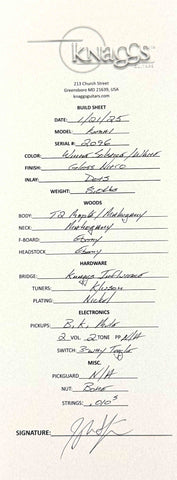 KNAGGS
GUITARS
213 Church Street
Greensboro MD 21639, USA
knaggsguitars.com
BUILD SHEET
DATE: 1/21/25
MODEL: Kenai
SERIAL #: 2096
COLOR: Winter Solstice /
FINISH: Gloss Nitro
INLAY: Dots
WEIGHT:
WOODS
BODY: T2 Maple / Mahogany
NECK: Mahogany
F-BOARD: Ebony
HEADSTOCK: Ebony
HARDWARE
BRIDGE: Knaggs Influence
TUNERS: Kluson
PLATING: Nickel
ELECTRONICS
PICKUPS: B.K.
2 VOL. 2 TONE PP N/A
SWITCH 3 way Toggle
MISC.
PICKGUARD N/A
NUT: Bone
STRINGS: .010s
SIGNATURE: